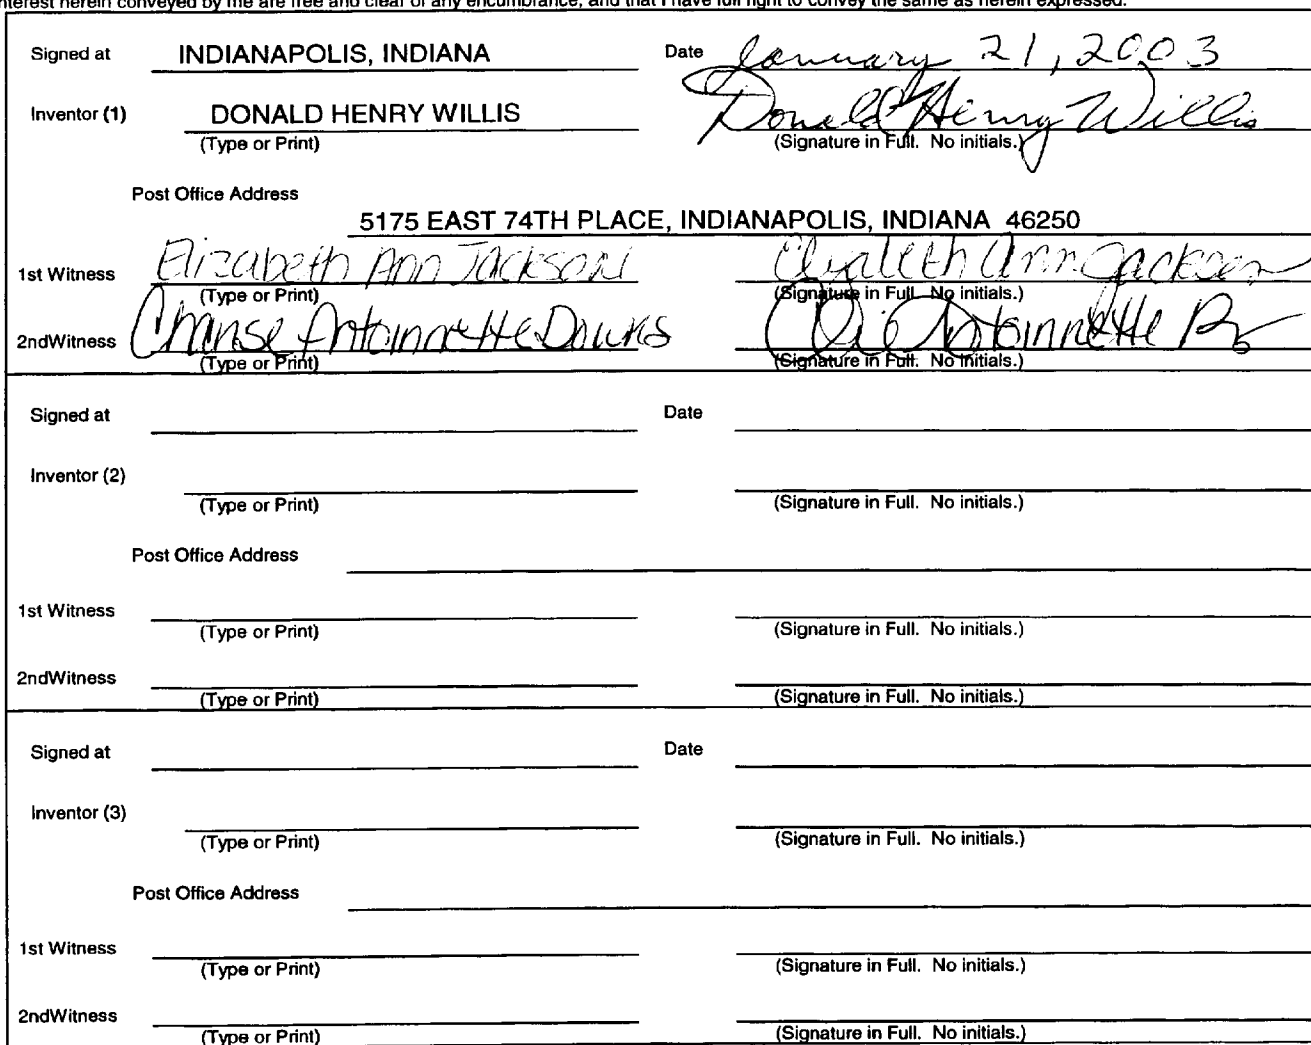 nterest herein conveyed by me are free and clear of any encumbrance, and that I have full right to convey the same as herein expressed.
Signed at INDIANAPOLIS, INDIANA Date January 21, 2003
Inventor (1) DONALD HENRY WILLIS Donald Henry Willis
(Type or Print) (Signature in Full. No initials.)
Post Office Address
5175 EAST 74TH PLACE, INDIANAPOLIS, INDIANA 46250
1st Witness Elizabeth Ann Jackson Elizabeth Ann Jackson
(Type or Print) (Signature in Full. No initials.)
2ndWitness Antoinnette Downs Antoinnette
(Type or Print) (Signature in Full. No initials.)
Signed at Date
Inventor (2)
(Type or Print) (Signature in Full. No initials.)
Post Office Address
1st Witness
(Type or Print) (Signature in Full. No initials.)
2ndWitness
(Type or Print) (Signature in Full. No initials.)
Signed at Date
Inventor (3)
(Type or Print) (Signature in Full. No initials.)
Post Office Address
1st Witness
(Type or Print) (Signature in Full. No initials.)
2ndWitness
(Type or Print) (Signature in Full. No initials.)